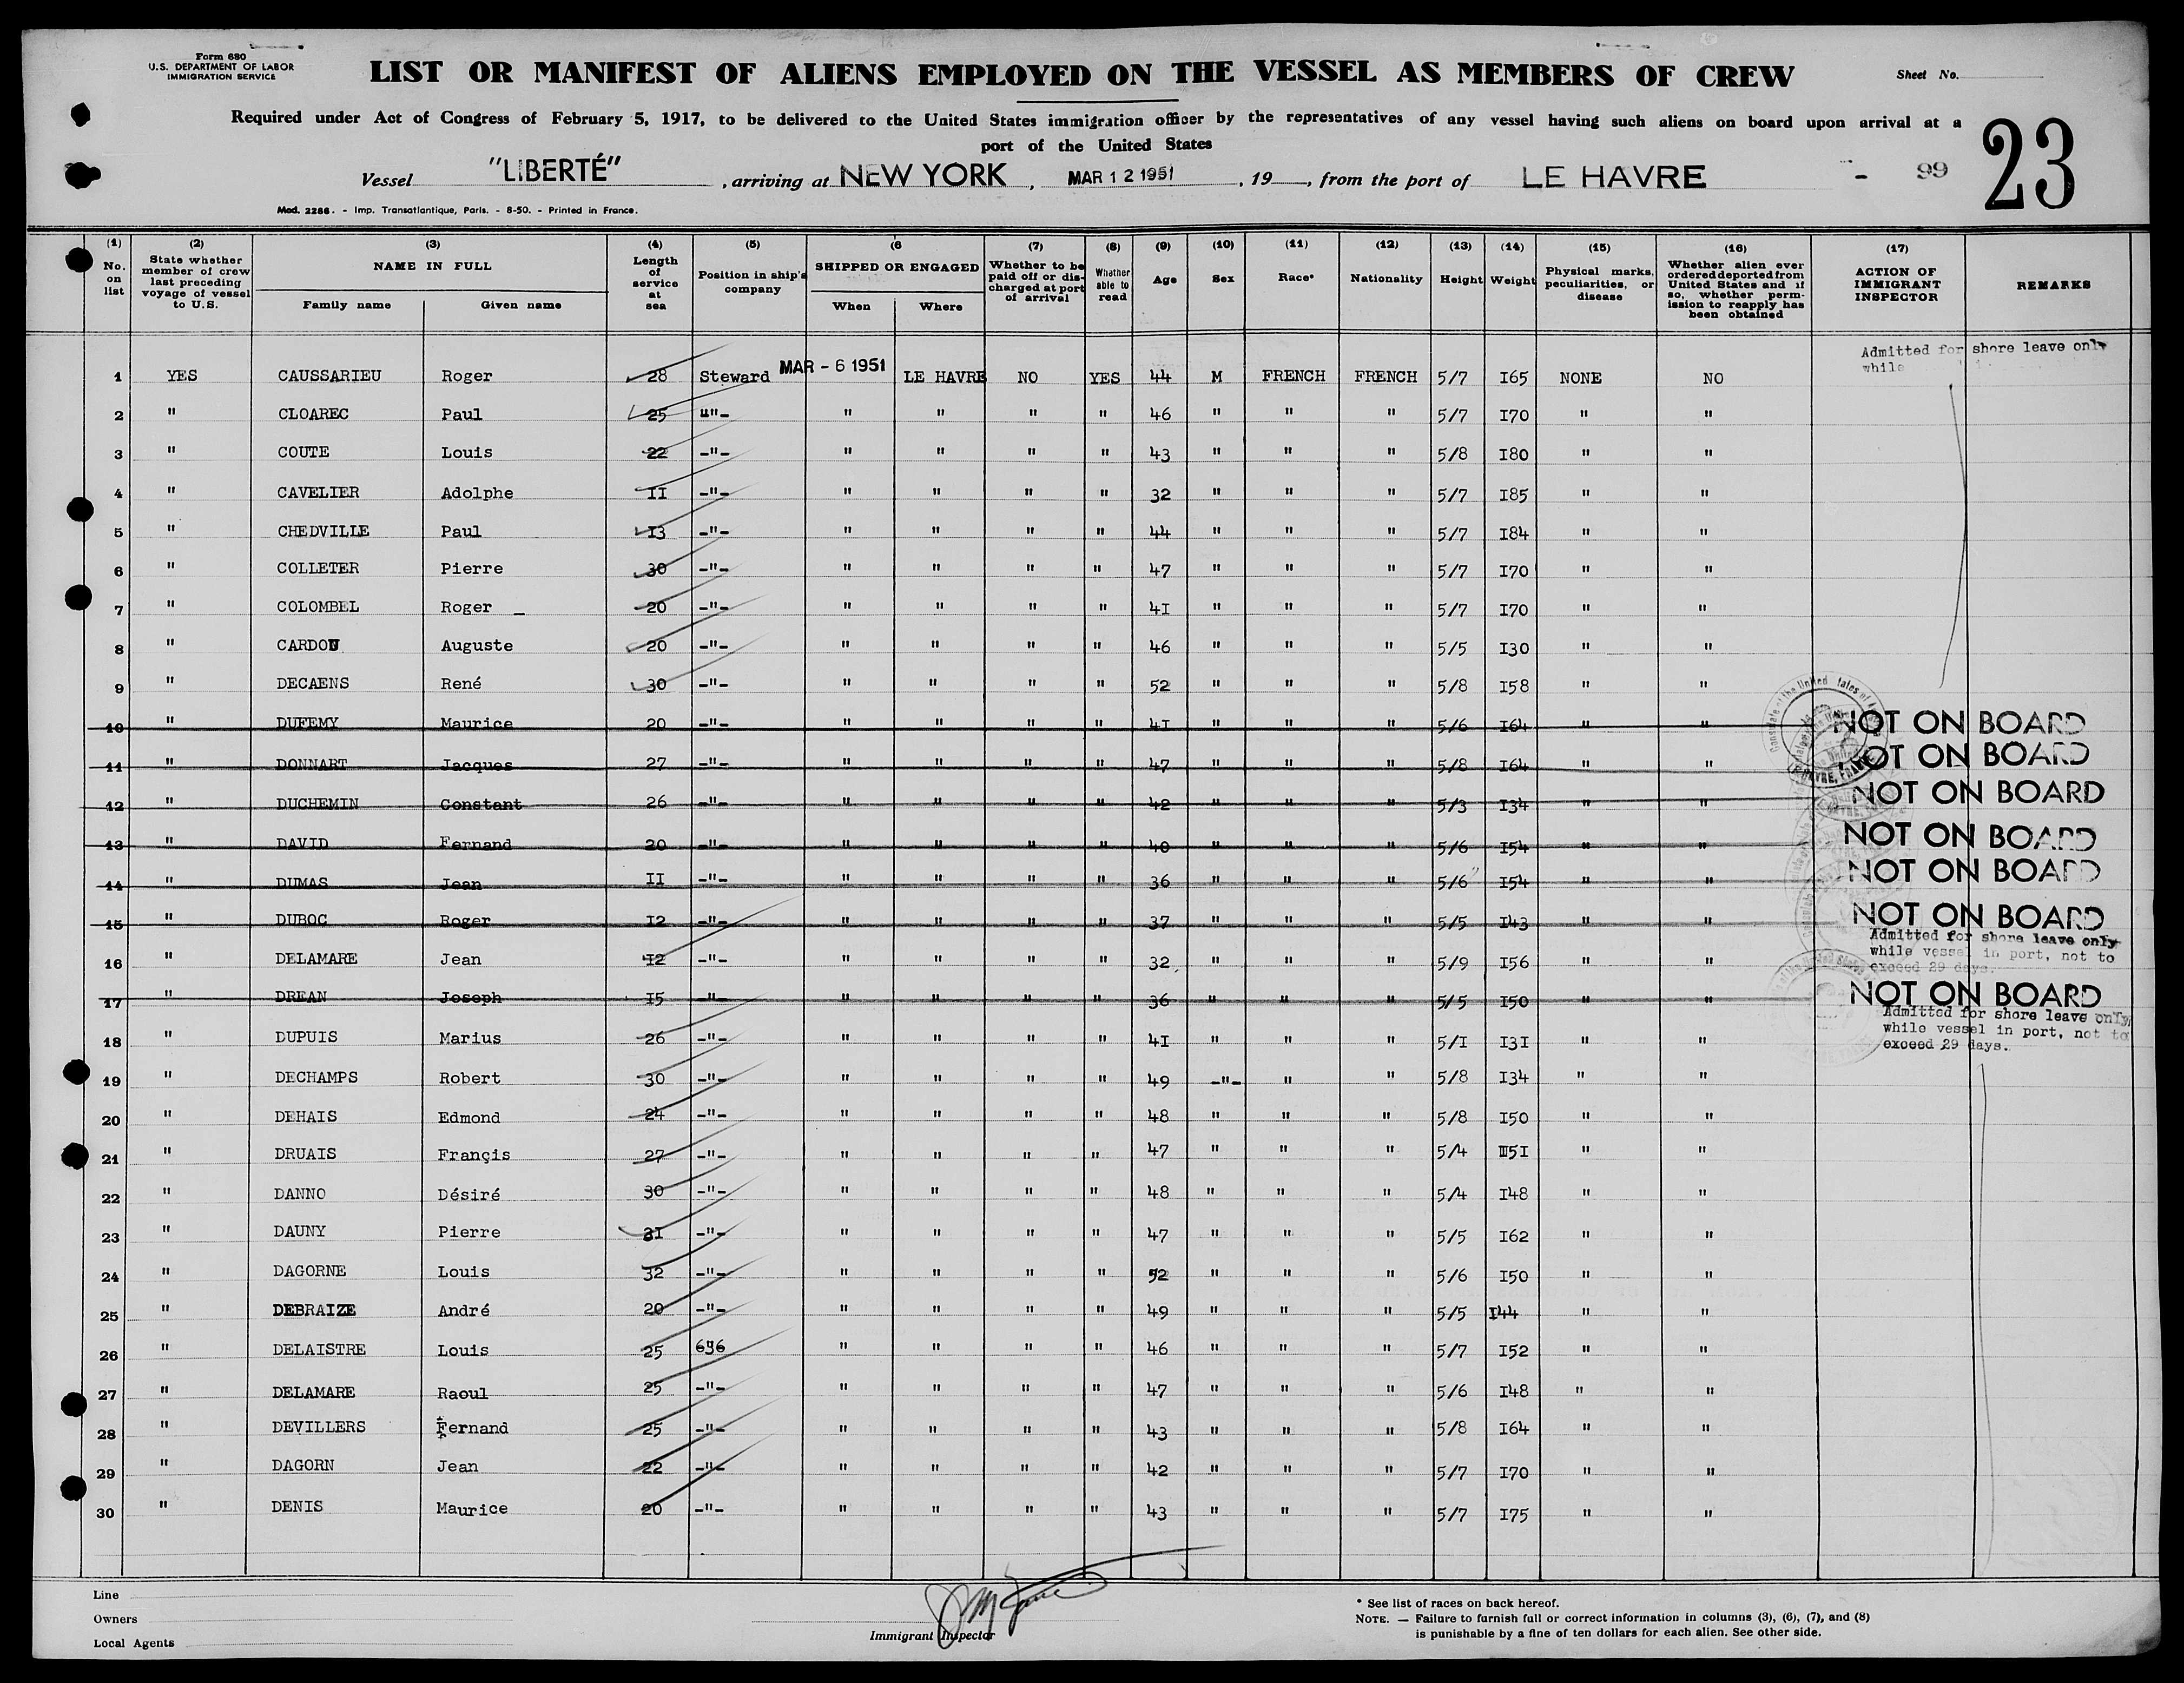 Form 680
U.S. DEPARTMENT OF LABOR
IMMIGRATION SERVICE
LIST OR MANIFEST OF ALIENS EMPLOYED ON THE VESSEL AS MEMBERS OF CREW
Sheet No.
Required under Act of Congress of February 5, 1917, to be delivered to the United States immigration officer by the representatives of any vessel having such aliens on board upon arrival at a
port of the United States
23
Vessel "LIBERTÉ", arriving at NEW YORK, MAR 12 1951, 19__, from the port of LE HAVRE - 99
Mod. 2286. - Imp. Transatlantique, Paris. - 8-50. - Printed in France.
(1) No. on list (2) State whether member of crew last preceding voyage of vessel to U.S. (3) NAME IN FULL Family name Given name (4) Length of service at sea (5) Position in ship's company (6 SHIPPED OR ENGAGED When Where (7) Whether to be paid off or discharged at port of arrival (8) Whether able to read (9) Age (10) Sex (11) Race* (12) Nationality (13) Height (14) Weight (15) Physical marks, peculiarities, or disease (16) Whether alien ever ordered deported from United States and if so, whether permission to reapply has been obtained (17) ACTION OF IMMIGRANT INSPECTOR REMARKS
Admitted for shore leave only
while
1 YES CAUSSARIEU Roger 28 Steward MAR - 6 1951 LE HAVRE NO YES 44 M FRENCH FRENCH 5/7 I65 NONE NO
2 " CLOAREC Paul 25 ""- " " " " 46 " " " 5/7 I70 " "
3 " COUTE Louis 22 -"- " " " " 43 " " " 5/8 I80 " "
4 " CAVELIER Adolphe II -"- " " " " 32 " " " 5/7 I85 " "
5 " CHEDVILLE Paul I3 -"- " " " " 44 " " " 5/7 I84 " "
6 " COLLETER Pierre 30 -"- " " " " 47 " " " 5/7 I70 " "
7 " COLOMBEL Roger _ 20 -"- " " " " 4I " " " 5/7 I70 " "
8 " CARDOU Auguste 20 -"- " " " " 46 " " " 5/5 I30 " "
9 " DECAENS René 30 -"- " " " " 52 " " " 5/8 I58 " "
10 " DUFEMY Maurice 20 -"- " " " " 4I " " " 5/6 I64 " " NOT ON BOARD
11 " DONNART Jacques 27 -"- " " " " 47 " " " 5/8 I64 " " NOT ON BOARD
12 " DUCHEMIN Constant 26 -"- " " " " 42 " " " 5/3 I34 " " NOT ON BOARD
13 " DAVID Fernand 20 -"- " " " " 40 " " " 5/6 I54 " " NOT ON BOARD
14 " DUMAS Jean II -"- " " " " 36 " " " 5/6 I54 " " NOT ON BOARD
15 " DUBOC Roger I2 -"- " " " " 37 " " " 5/5 I43 " " NOT ON BOARD
16 " DELAMARE Jean I2 -"- " " " " 32 " " " 5/9 I56 " " Admitted for shore leave only
while vessel in port, not to
exceed 29 days.
17 " DREAN Joseph I5 -"- " " " " 36 " " " 5/5 I50 " " NOT ON BOARD
18 " DUPUIS Marius 26 -"- " " " " 4I " " " 5/I I3I " " Admitted for shore leave only
while vessel in port, not to
exceed 29 days.
19 " DECHAMPS Robert 30 -"- " " " " 49 -"- " " 5/8 I34 " "
20 " DEHAIS Edmond 24 -"- " " " " 48 " " " 5/8 I50 " "
21 " DRUAIS Françis 27 -"- " " " " 47 " " " 5/4 I5I " "
22 " DANNO Désiré 30 -"- " " " " 48 " " " 5/4 I48 " "
23 " DAUNY Pierre 31 -"- " " " " 47 " " " 5/5 I62 " "
24 " DAGORNE Louis 32 -"- " " " " 52 " " " 5/6 I50 " "
25 " DEBRAIZE André 20 -"- " " " " 49 " " " 5/5 I44 " "
26 " DELAISTRE Louis 25 " " " " 46 " " " 5/7 I52 " "
27 " DELAMARE Raoul 25 -"- " " " " 47 " " " 5/6 I48 " "
28 " DEVILLERS Fernand 25 -"- " " " " 43 " " " 5/8 I64 " "
29 " DAGORN Jean 22 -"- " " " " 42 " " " 5/7 I70 " "
30 " DENIS Maurice 20 -"- " " " " 43 " " " 5/7 I75 " "
Line
Owners
Local Agents
Immigrant Inspector
* See list of races on back hereof.
NOTE. — Failure to furnish full or correct information in columns (3), (6), (7), and (8)
is punishable by a fine of ten dollars for each alien. See other side.